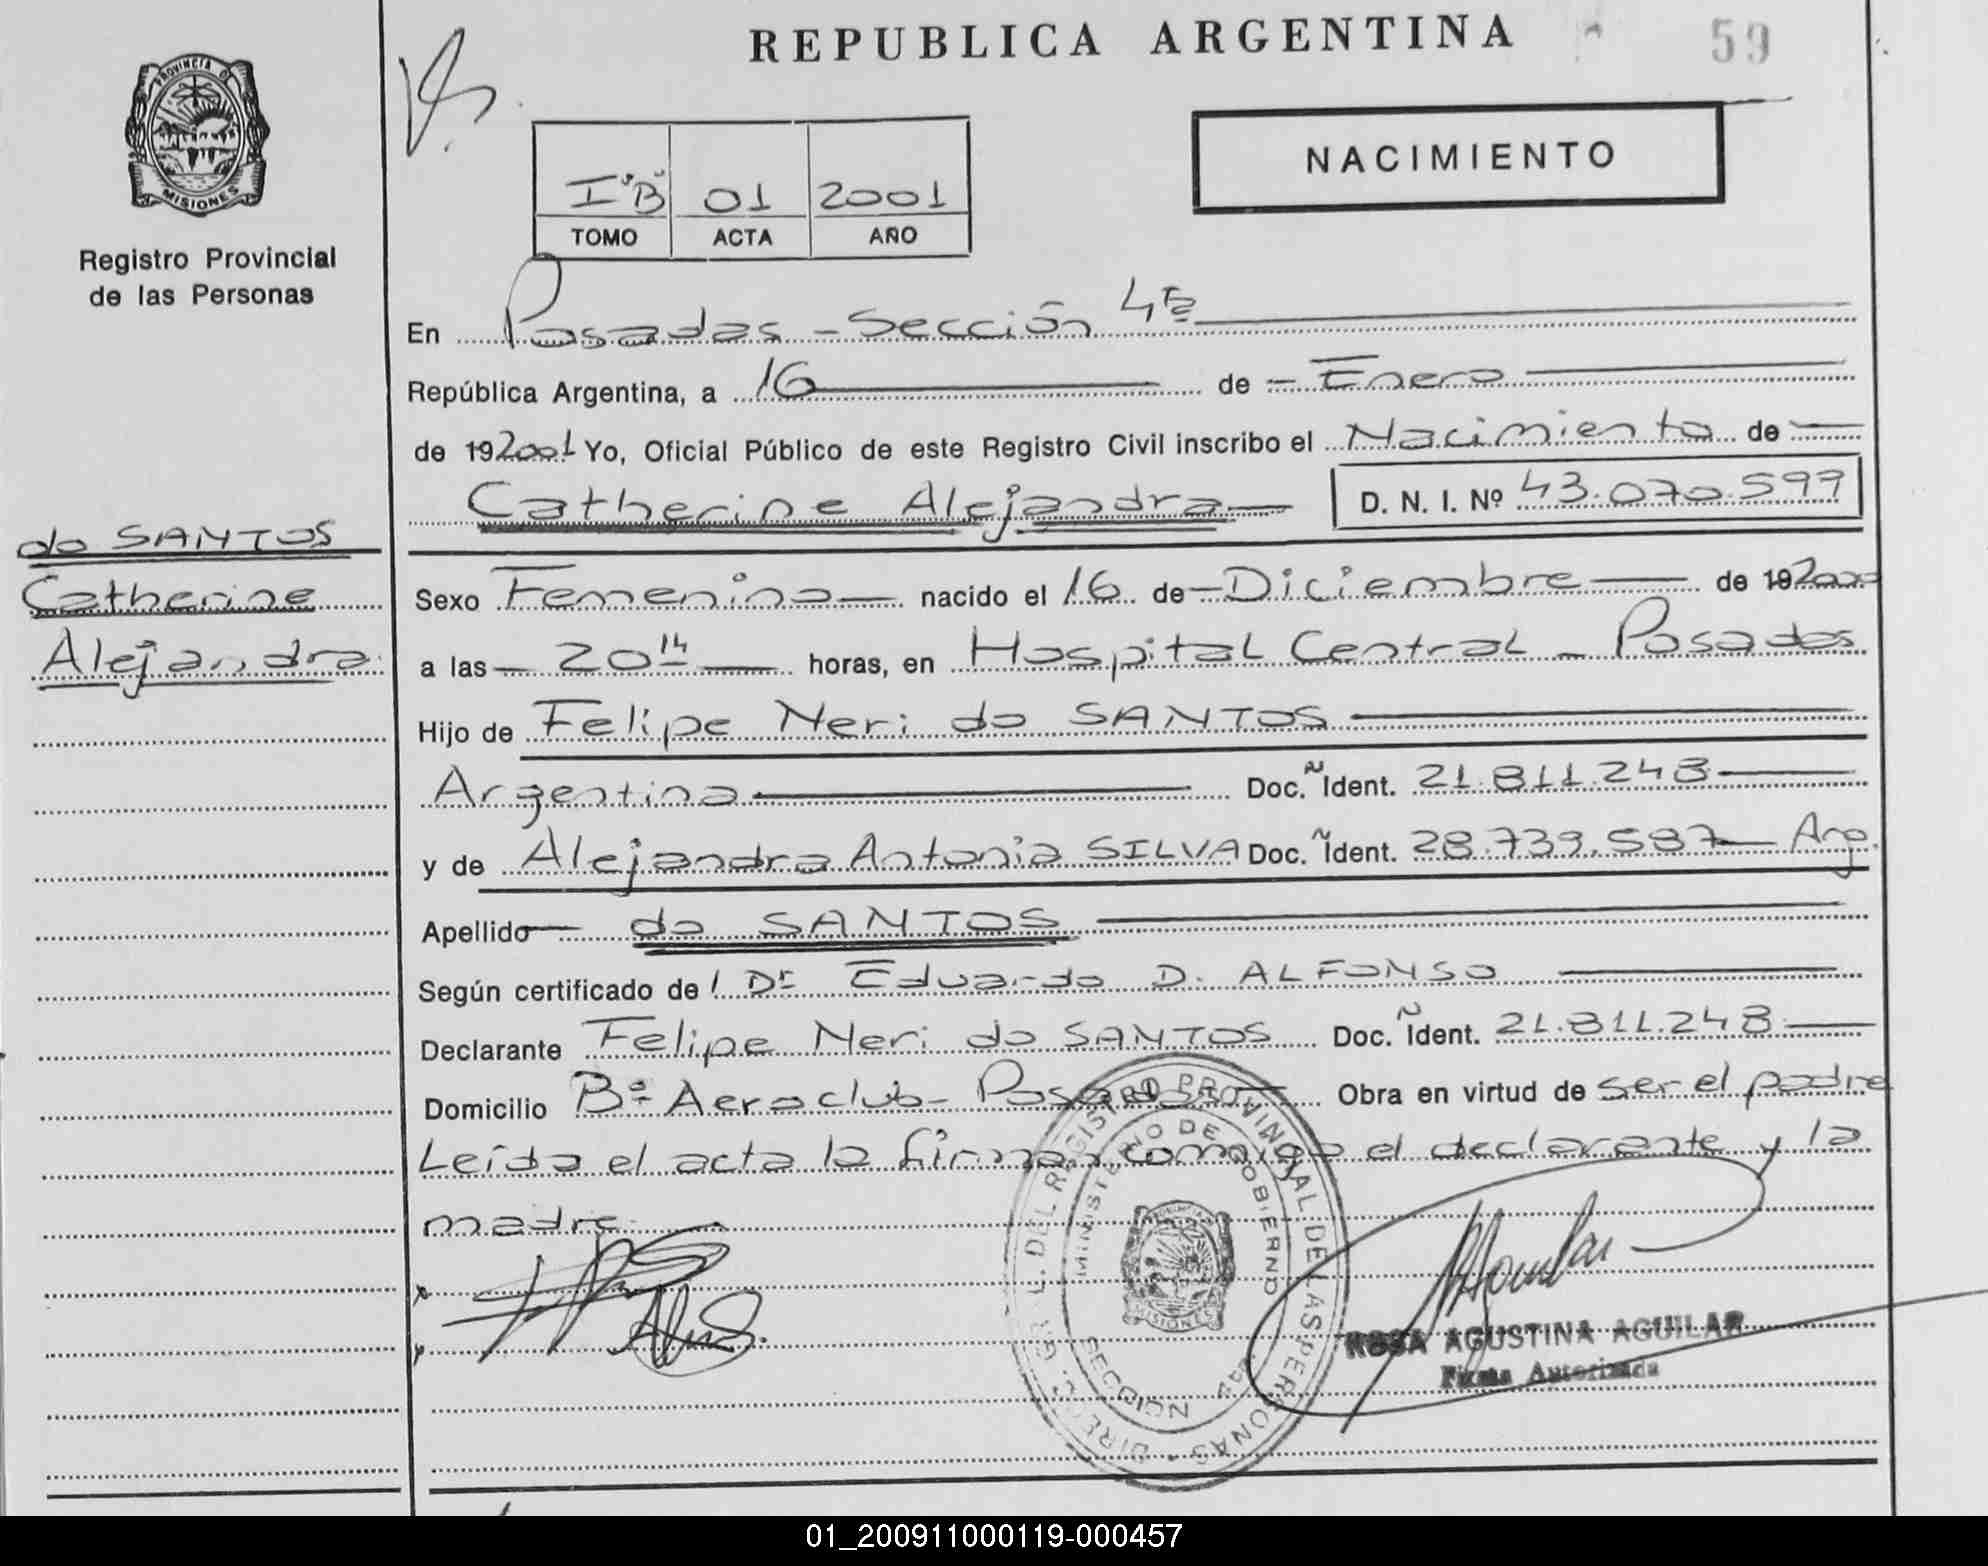 REPUBLICA ARGENTINA
59
PROVINCIA DE
MISIONES
Registro Provincial
de las Personas
NACIMIENTO
I "B" 01 2001
TOMO ACTA AÑO
En Posadas - Sección 4ta
República Argentina, a 16 de - Enero
de 192001 Yo, Oficial Público de este Registro Civil inscribo el Nacimiento de
Catherine Alejandra D. N. I. Nº 43.070.597
do SANTOS
Catherine
Alejandra
Sexo Femenino nacido el 16 de Diciembre de 192000
a las 20 14 horas, en Hospital Central - Posadas
Hijo de Felipe Neri do SANTOS
Argentino Doc. Ident. 21.811.248
y de Alejandra Antonia SILVA Doc. Ident. 28.739.587 Arg.
Apellido do SANTOS
Según certificado de Dr Eduardo D. ALFONSO
Declarante Felipe Neri do SANTOS Doc. Ident. 21.811.248
Domicilio Bº Aeroclub - Posadas Obra en virtud de ser el padre
Leída el acta la firman conmigo el declarante y la
madre.
DIREC. GRAL. DEL REGISTRO PROVINCIAL DE LAS PERSONAS
MINISTERIO DE GOBIERNO
SECCION 4ta.
MISIONES
ROSA AGUSTINA AGUILAR
Firma Autorizada
01_200911000119-000457